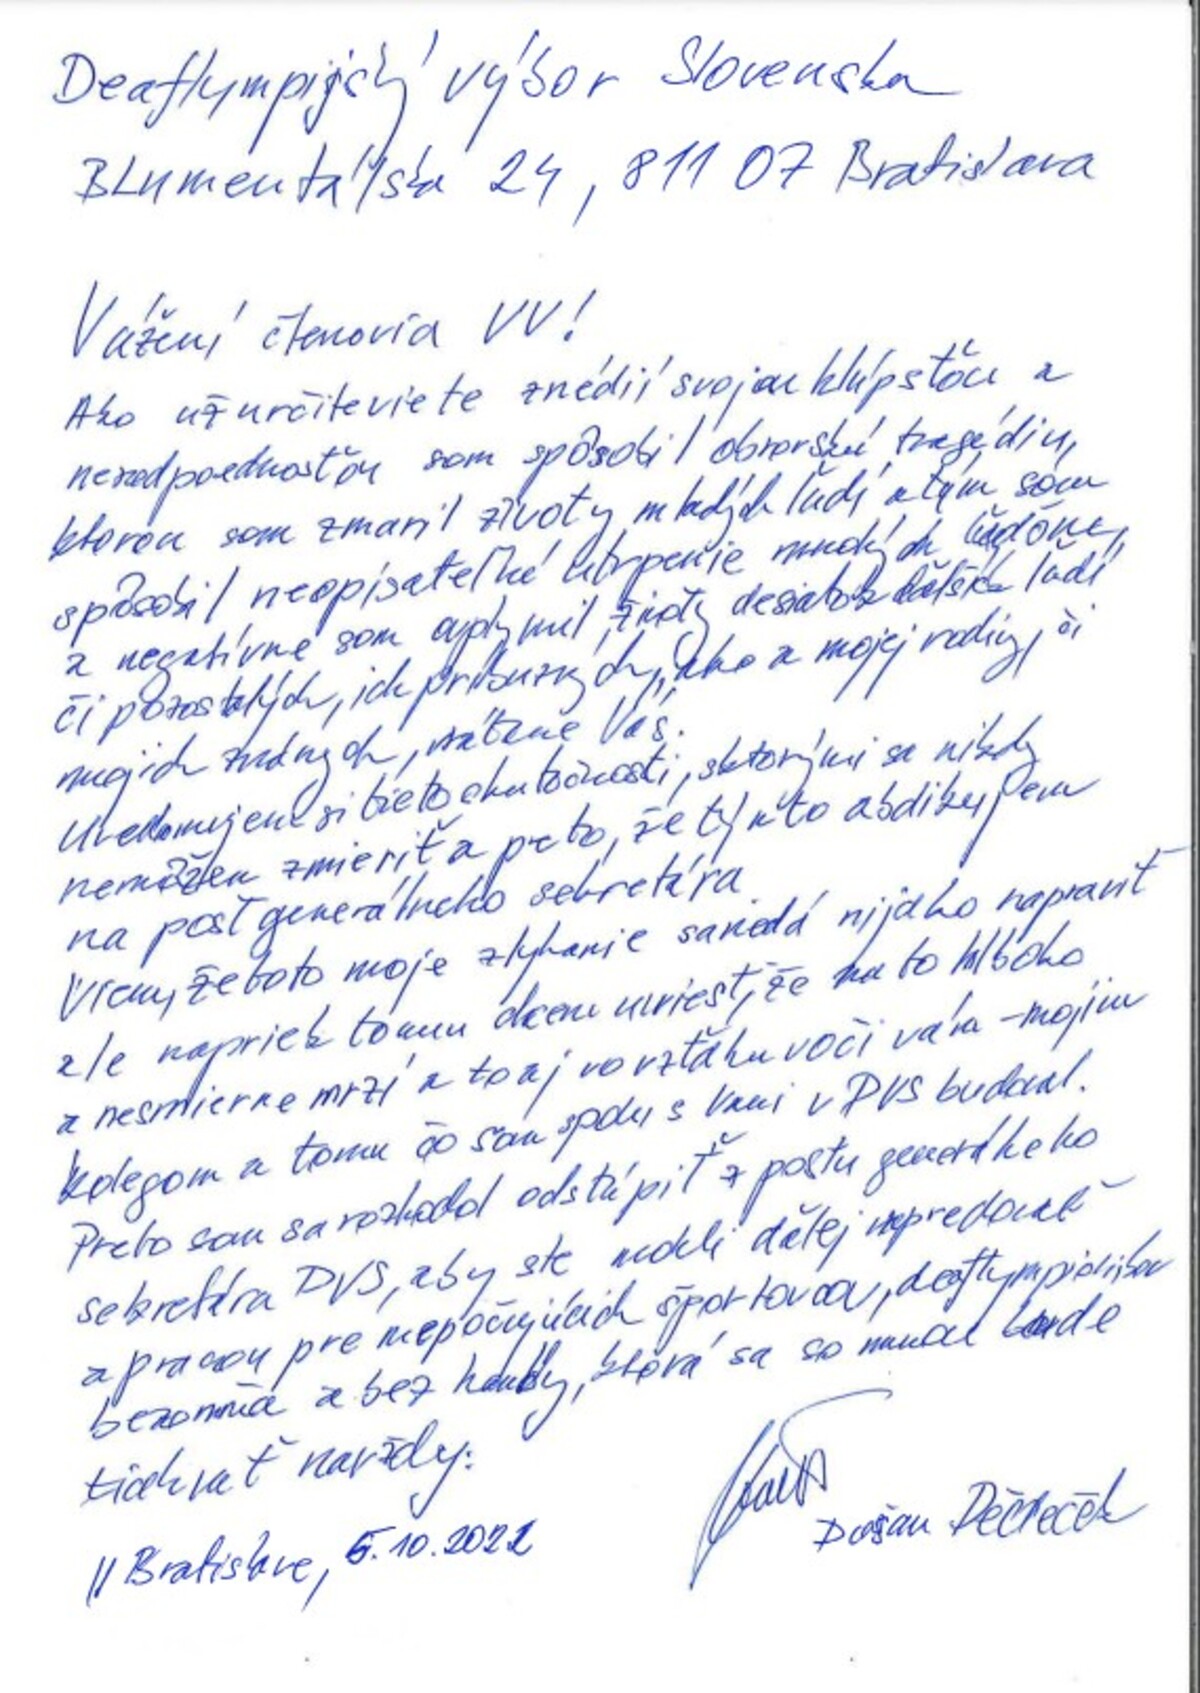 Deaflympijský výbor Slovenska
Blumentálska 24, 811 07 Bratislava
Vážení členovia VV!
Ako už určite viete z médií svojou hlúpsťou a
nezodpovednosťou som spôsobil obrovskú tragédiu,
ktorou som zmaril životy mladých ľudí a tým som
spôsobil neopísateľné utrpenie mnohých
a negatívne som ovplyvnil životy desiatok ďalších ľudí
či pozostalých, ich príbuzných, ako a mojej rodiny, či
mojich známych, vrátane Vás.
Uvedomujem si tieto skutočnosti, s ktorými sa nikdy
nemôžem zmieriť a preto, že týmto abdikujem
na post generálneho sekretára
Viem, že toto moje zlyhanie sa nedá nijako napraviť
ale napriek tomu chcem uviesť, že ma to hlboko
a nesmierne mrzí a to aj vo vzťahu voči vám - mojim
kolegom a tomu čo som spolu s Vami v DVS budoval.
Preto som sa rozhodol odstúpiť z postu generálneho
sekretára DVS, aby ste mohli ďalej napredovať
a pracou pre nepočujúcich športovcov, deaflympionikov
bezo mňa a bez hanby, ktorá sa so mnou bude
tiahnuť navždy.
V Bratislave, 5.10.2022
Dušan Dědeček